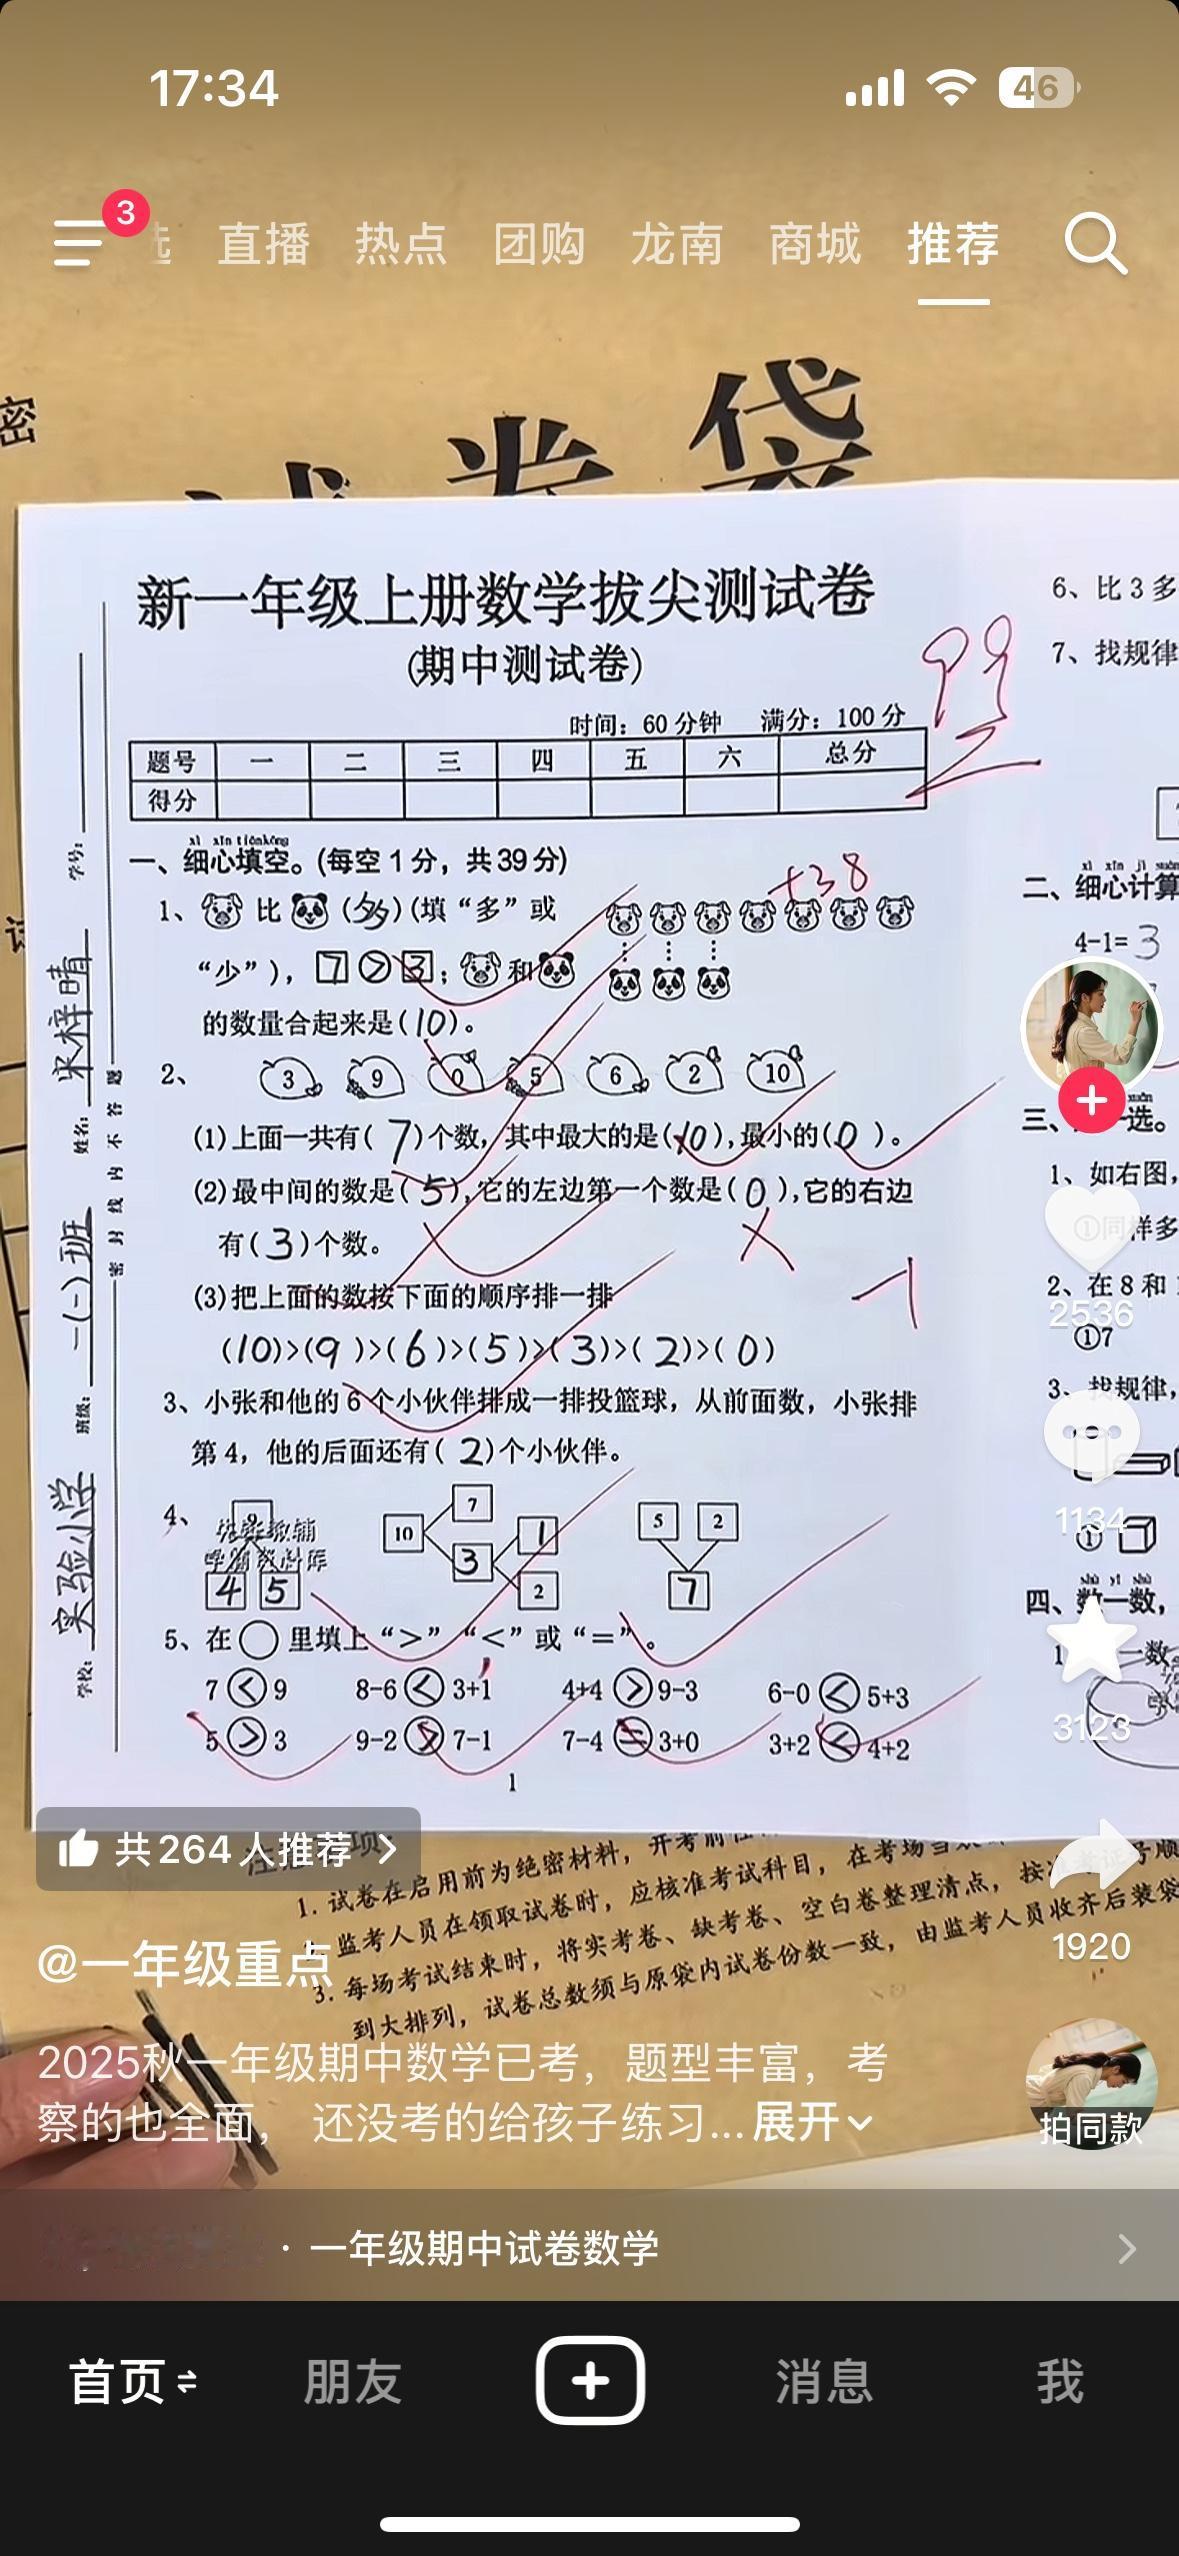 17:34
46
3
直播 热点 团购 龙南 商城 推荐
密
试卷袋
新一年级上册数学拔尖测试卷
(期中测试卷)
99
时间：60 分钟 满分：100 分
题号 一 二 三 四 五 六 总分
得分
一、细心填空。(每空 1 分，共 39 分)
+38
1、比(多)(填“多”或
“少”)，7>3；和
的数量合起来是(10)。
2、 3 9 0 5 6 2 10
(1)上面一共有(7)个数，其中最大的是(10)，最小的(0)。
(2)最中间的数是(5)，它的左边第一个数是(0)，它的右边
有(3)个数。
-1
(3)把上面的数按下面的顺序排一排
(10)>(9)>(6)>(5)>(3)>(2)>(0)
3、小张和他的 6 个小伙伴排成一排投篮球，从前面数，小张排
第 4，他的后面还有(2)个小伙伴。
4、 9 4 5 10 7 3 1 2 5 2 7
5、在○里填上“>”“<”或“=”。
7<9 8-6<3+1 4+4>9-3 6-0<5+3
5>3 9-2>7-1 7-4=3+0 3+2<4+2
1
学号：
姓名：宋梓晴
班级：一(一)班
学校：实验小学
密 封 线 内 不 答 题
6、比 3 多
7、找规律
二、细心计算
4-1=3
三、
选。
1、如右图，
①同样多
2、在 8 和
①7
3、找规律，
①
四、数一数，
2536
1134
3123
1920
共264人推荐
1. 试卷在启用前为绝密材料，开考前
监考人员在领取试卷时，应核准考试科目，在考场当
3. 每场考试结束时，将实考卷、缺考卷、空白卷整理清点，按准考证号顺
到大排列，试卷总数须与原袋内试卷份数一致，由监考人员收齐后装袋
@一年级重点
2025秋一年级期中数学已考，题型丰富，考
察的也全面， 还没考的给孩子练习... 展开
拍同款
· 一年级期中试卷数学
首页 朋友 消息 我